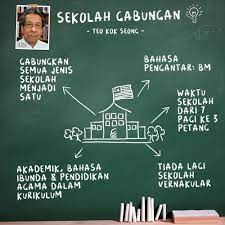 SEKOLAH GABUNGAN
- TEO KOK SEONG -
GABUNGKAN
SEMUA JENIS
SEKOLAH
MENJADI
SATU
BAHASA
PENGANTAR: BM
WAKTU
SEKOLAH
DARI 7
PAGI KE 3
PETANG
AKADEMIK, BAHASA
IBUNDA & PENDIDIKAN
AGAMA DALAM
KURIKULUM
TIADA LAGI
SEKOLAH
VERNAKULAR